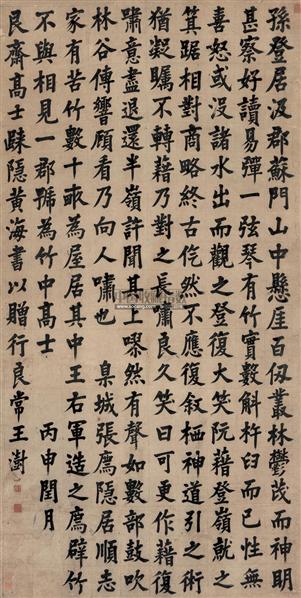 孫登居汲郡蘇門山中懸厓百仞叢林鬱茂而神明
甚察好讀易彈一弦琴有竹實數斛杵臼而已性無
喜怒或没諸水出而觀之登復大笑阮藉登嶺就之
箕踞相對商略終古仡然不應復敘栖神道引之術
猶凝矚不轉藉乃對之長嘯良久笑曰可更作藉復
嘯意盡退還半嶺許聞其上㗲然有聲如數部鼓吹
林谷傳響顧看乃向人嘯也　臬城張廌隱居順志
家有苦竹數十畝為屋居其中王右軍造之廌辟竹
不與相見一郡號為竹中高士　丙申閏月
良齋高士踈隱黃海書以贈行良常王澍